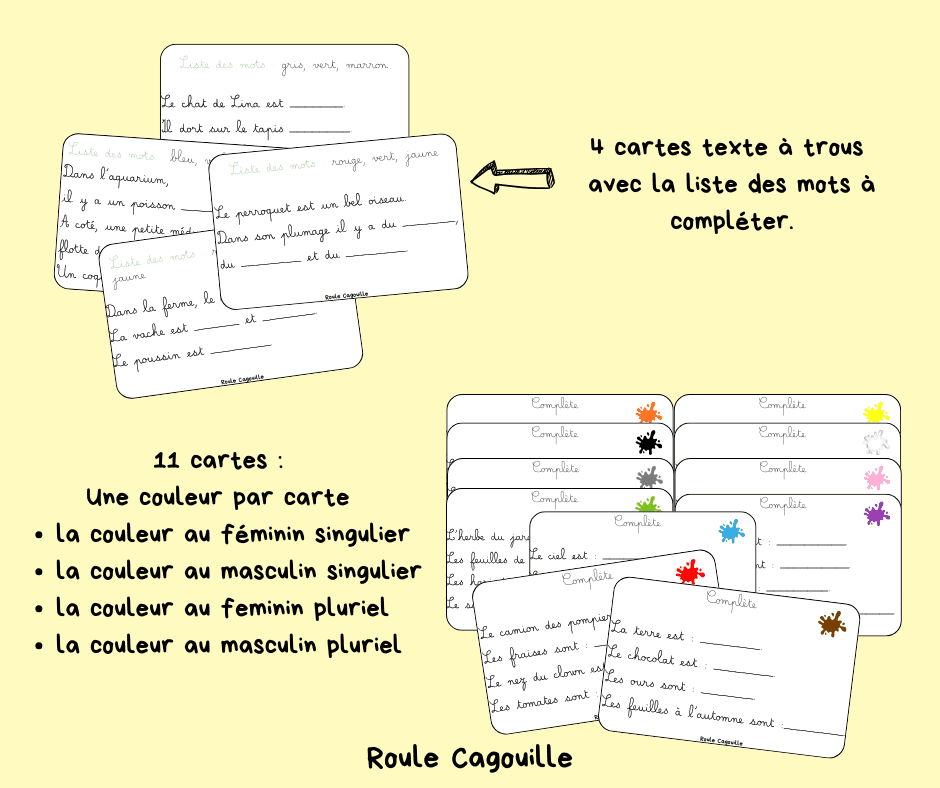 Liste des mots : gris, vert, marron
Le chat de Lina est ________.
Il dort sur le tapis ________.
Liste des mots : bleu,
Dans l'aquarium,
il y a un poisson ____
A coté, une petite
flotte
Un
Liste des mots : rouge, vert, jaune
Le perroquet est un bel oiseau.
Dans son plumage il y a du ________,
du ________ et du ________.
Roule Cagouille
Liste des mots :
jaune
Dans la ferme, le
La vache est ________ et ________.
Le poussin est ________.
Roule Cagouille
4 cartes texte à trous
avec la liste des mots à
compléter.
11 cartes :
Une couleur par carte
• la couleur au féminin singulier
• la couleur au masculin singulier
• la couleur au feminin pluriel
• la couleur au masculin pluriel
Complète
Complète
Complète
Complète
Complète
Complète
Complète
Complète
L'herbe du
Les feuilles de
Les
Le
Complète
Le ciel est : ________
Complète
Le camion des pompiers
Les fraises sont : __
Le nez du clown est
Les tomates sont :
Complète
La terre est : ________
Le chocolat est : ________
Les ours sont : ________
Les feuilles à l'automne sont : ________
Roule Cagouille
Roule Cagouille